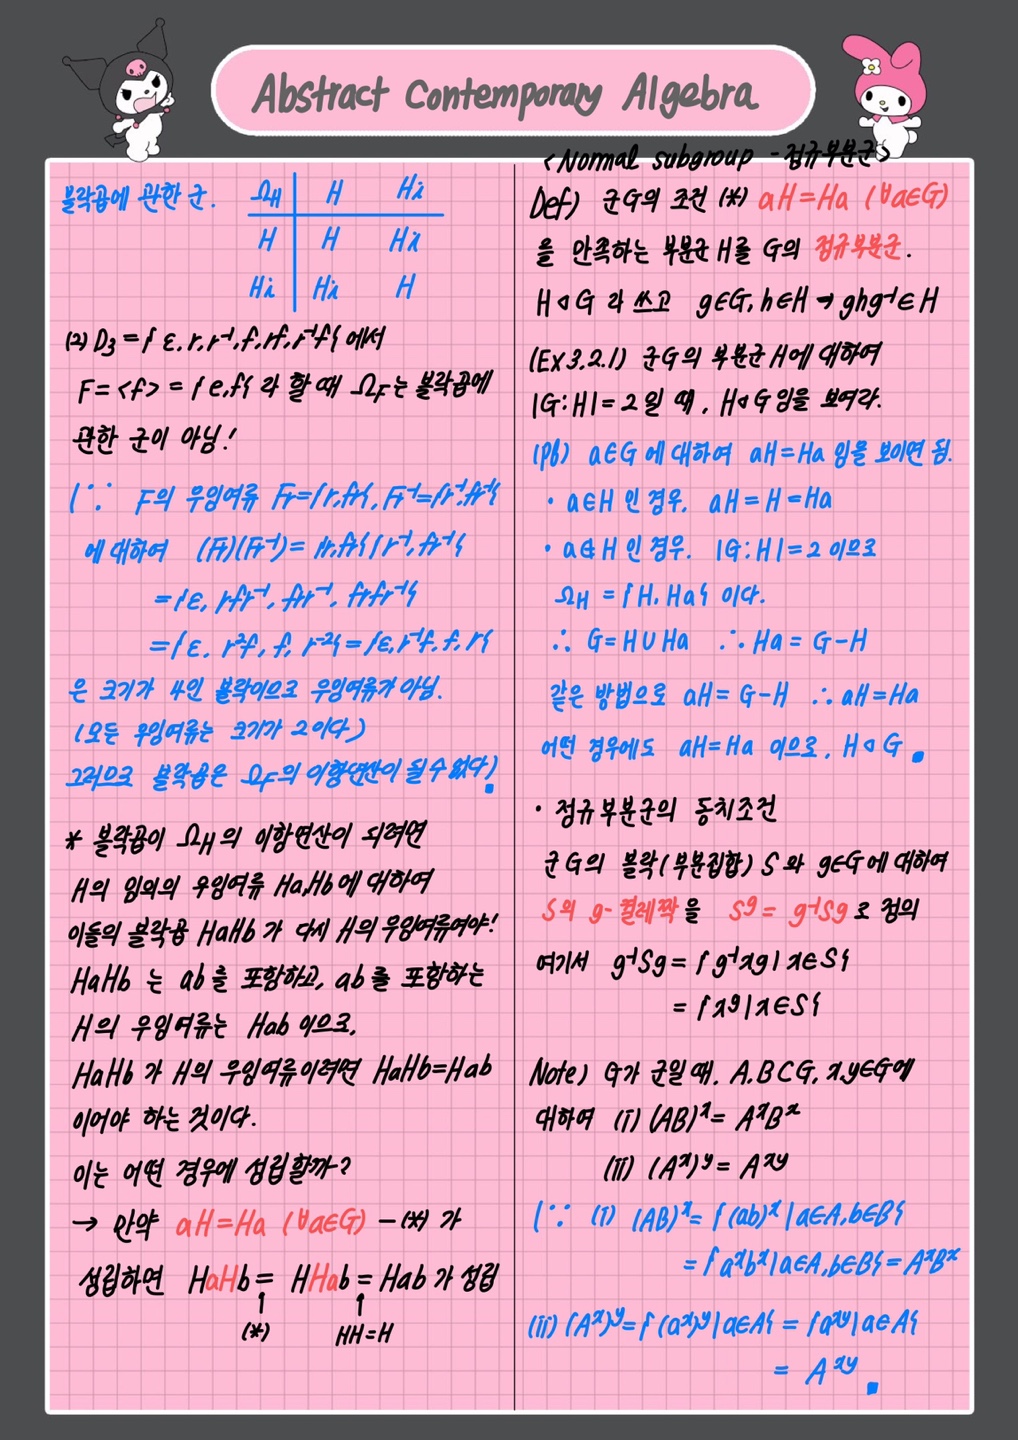 Abstract Contemporary Algebra
블락곱에 관한 군.
Ω_H H Hi
H H Hi
Hi Hi H
(2) D₃ = { ε, r, r⁻¹, f, rf, r⁻¹f } 에서
F = <f> = { e, f } 라 할 때 Ω_F는 블락곱에
관한 군이 아님!
(∵ F의 우잉여류 Fr={r, fr}, Fr⁻¹={r⁻¹, fr⁻¹}
에 대하여 (Fr)(Fr⁻¹) = {r, fr}{r⁻¹, fr⁻¹}
= {ε, rfr⁻¹, frr⁻¹, frfr⁻¹}
= {ε, r²f, f, r⁻²} = {ε, r⁻¹f, f, r}
은 크기가 4인 블락이므로 우잉여류가 아님.
(모든 우잉여류는 크기가 2이다)
그러므로 블락곱은 Ω_F의 이항연산이 될 수 없다)
* 블락곱이 Ω_H의 이항연산이 되려면
H의 임의의 우잉여류 Ha, Hb에 대하여
이들의 블락곱 HaHb가 다시 H의 우잉여류여야!
HaHb 는 ab를 포함하고, ab를 포함하는
H의 우잉여류는 Hab 이므로,
HaHb가 H의 우잉여류이려면 HaHb=Hab
이어야 하는 것이다.
이는 어떤 경우에 성립할까?
→ 만약 aH=Ha (∀a∈G) -(*) 가
성립하면 HaHb = HHab = Hab가 성립
↑ ↑
(*) HH=H
<Normal subgroup - 정규부분군>
Def) 군G의 조건 (*) aH=Ha (∀a∈G)
을 만족하는 부분군 H를 G의 정규부분군.
H◁G 라 쓰고 g∈G, h∈H → ghg⁻¹∈H
(Ex 3.2.1) 군G의 부분군 H에 대하여
|G:H|=2일 때, H◁G임을 보여라.
(pf) a∈G에 대하여 aH=Ha임을 보이면 됨.
· a∈H인 경우. aH=H=Ha
· a∉H인 경우. |G:H|=2이므로
Ω_H = {H, Ha} 이다.
∴ G=H∪Ha ∴ Ha = G-H
같은 방법으로 aH=G-H ∴ aH=Ha
어떤 경우에도 aH=Ha 이므로, H◁G ■
· 정규부분군의 동치조건
군G의 블락(부분집합) S와 g∈G에 대하여
S의 g-켤레짝을 S^g = g⁻¹Sg로 정의
여기서 g⁻¹Sg = {g⁻¹xg | x∈S}
= {x^g | x∈S}
Note) G가 군일 때, A,B⊂G, x,y∈G에
대하여 (i) (AB)^x = A^xB^x
(ii) (A^x)^y = A^xy
(∵ (i) (AB)^x = {(ab)^x | a∈A, b∈B}
= {a^xb^x | a∈A, b∈B} = A^xB^x
(ii) (A^x)^y = {(a^x)^y | a∈A} = {a^xy | a∈A}
= A^xy ■